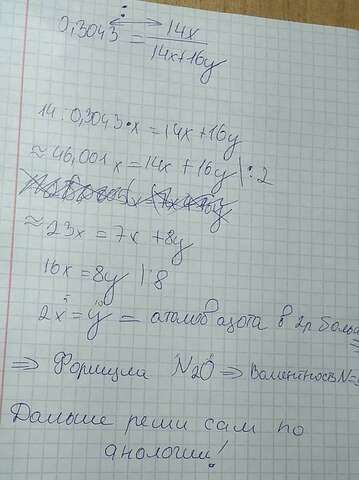 0,3043 = 14x / 14x+16y
:
14:0,3043·x = 14x + 16y
≈46,001x = 14x + 16y |:2
≈23x = 7x + 8y
16x = 8y |:8
2x = y = атомов азота в 2р больше
⇒ Формула N2O ⇒ Валентность N=
Дальше реши сам по
анологии!